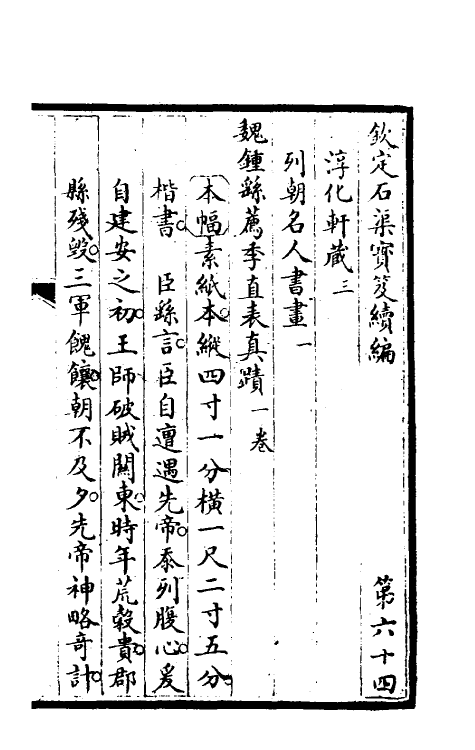 欽定石渠寶笈續編 第六十四
淳化軒藏三
列朝名人書畫一
魏鍾繇薦季直表真蹟一卷
本幅素紙本縱四寸一分橫一尺二寸五分
楷書 臣繇言臣自遭遇先帝忝列腹心爰
自建安之初王師破賊關東時年荒穀貴郡
縣殘毀三軍餽饟朝不及夕先帝神略奇計